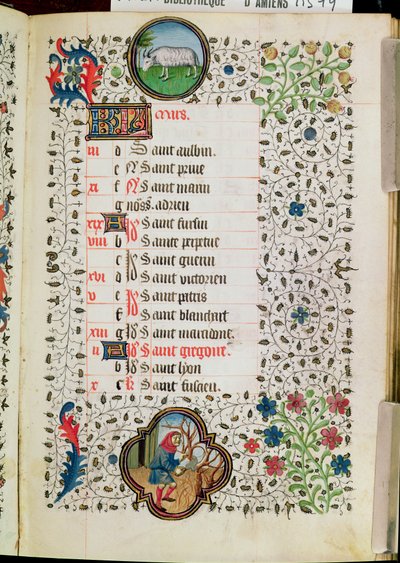 BIBLIOTHÈQUE D'AMIENS
KL mars.
iii d Saint aulbin.
e N Saint priue
xi f N Saint marin
g N oss. adrien
xix A N Saint fursin
viii b N Sainte perpetue
c N Saint guerin
xvi d N Saint victorien
v e N Saint patris
f N Saint blanchart
xiii g N Saint macidone.
ii A Id Saint gregoire.
b Id Saint lyon
x c kl Saint suseau.